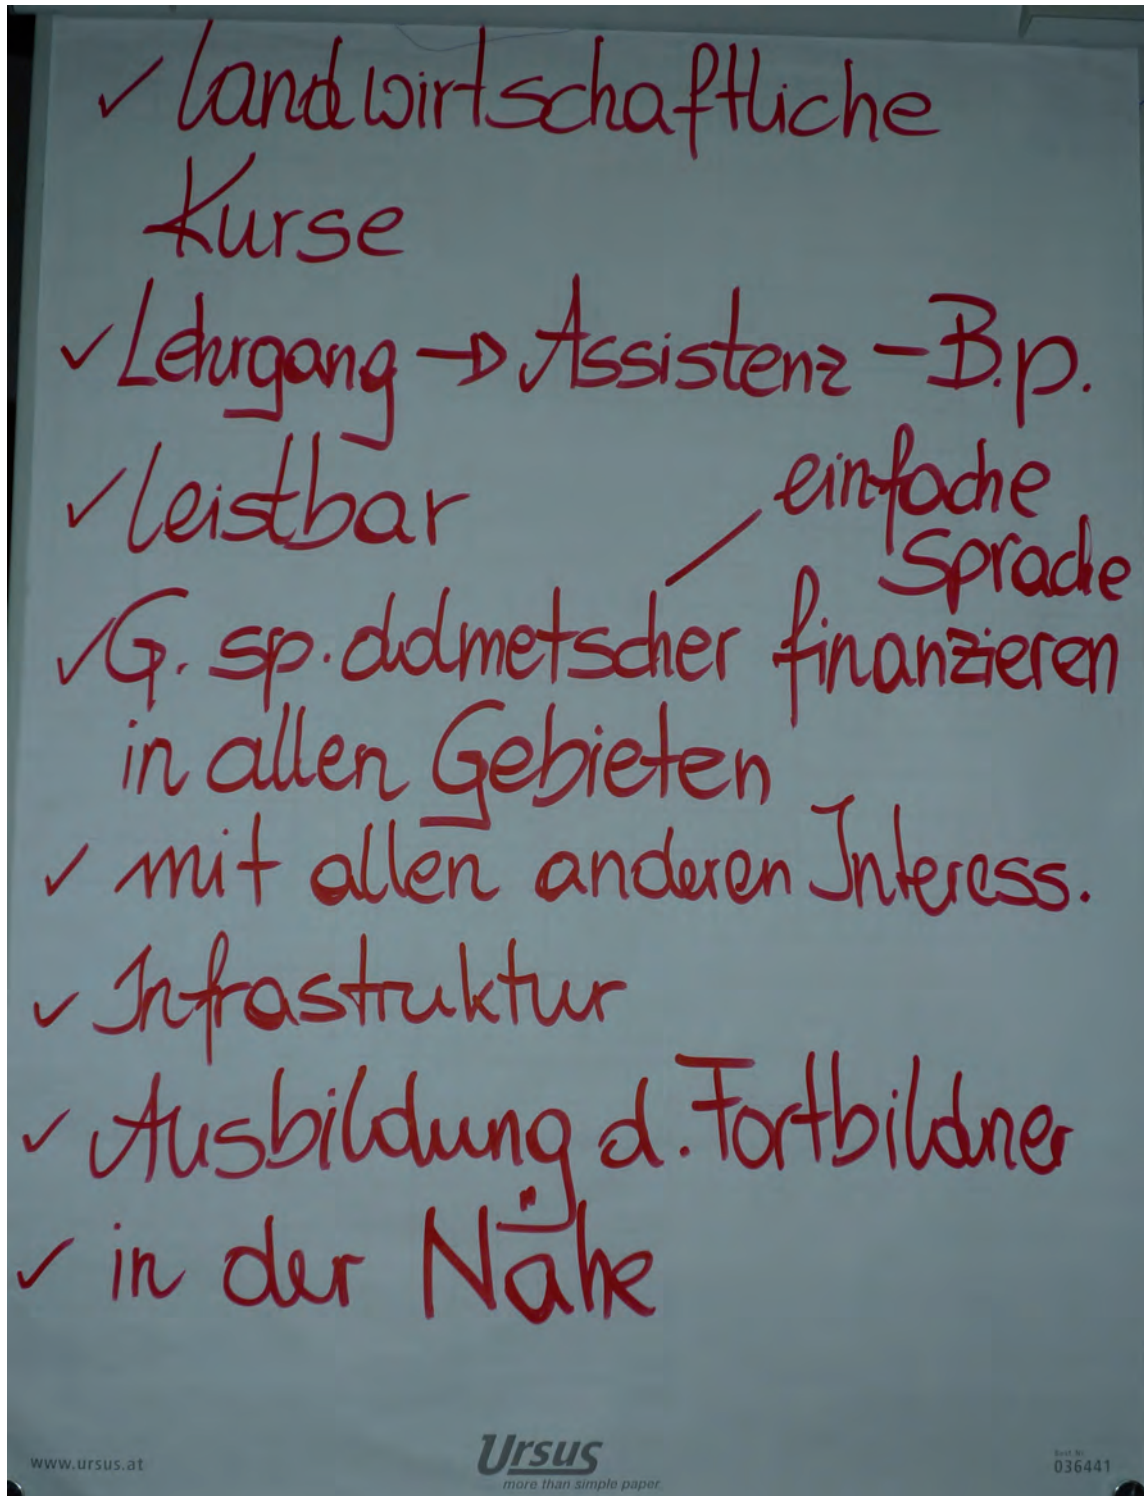 ✓ landwirtschaftliche
Kurse
✓ Lehrgang → Assistenz - B.p.
✓ leistbar
einfache
Sprache
✓ G. sp. dolmetscher finanzieren
in allen Gebieten
✓ mit allen anderen Interess.
✓ Infrastruktur
✓ Ausbildung d. Fortbildner
✓ in der Nähe
www.ursus.at
Ursus
more than simple paper
Best.Nr.
036441